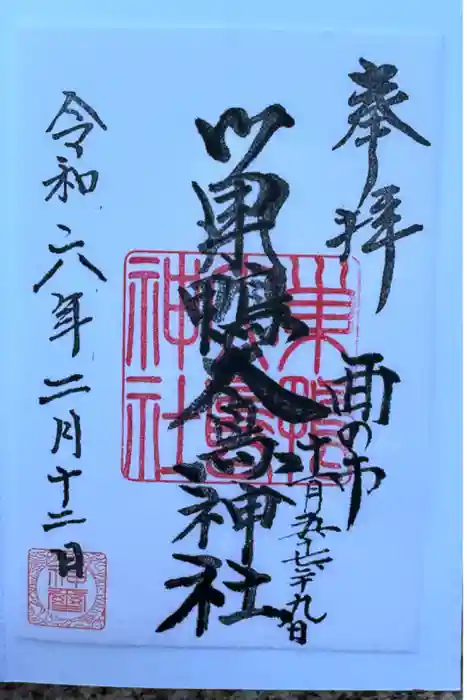 奉拝
酉の市
十一月五十七廿九日
巣鴨大鳥神社
巣鴨
大鳥
神社
令和六年二月十二日